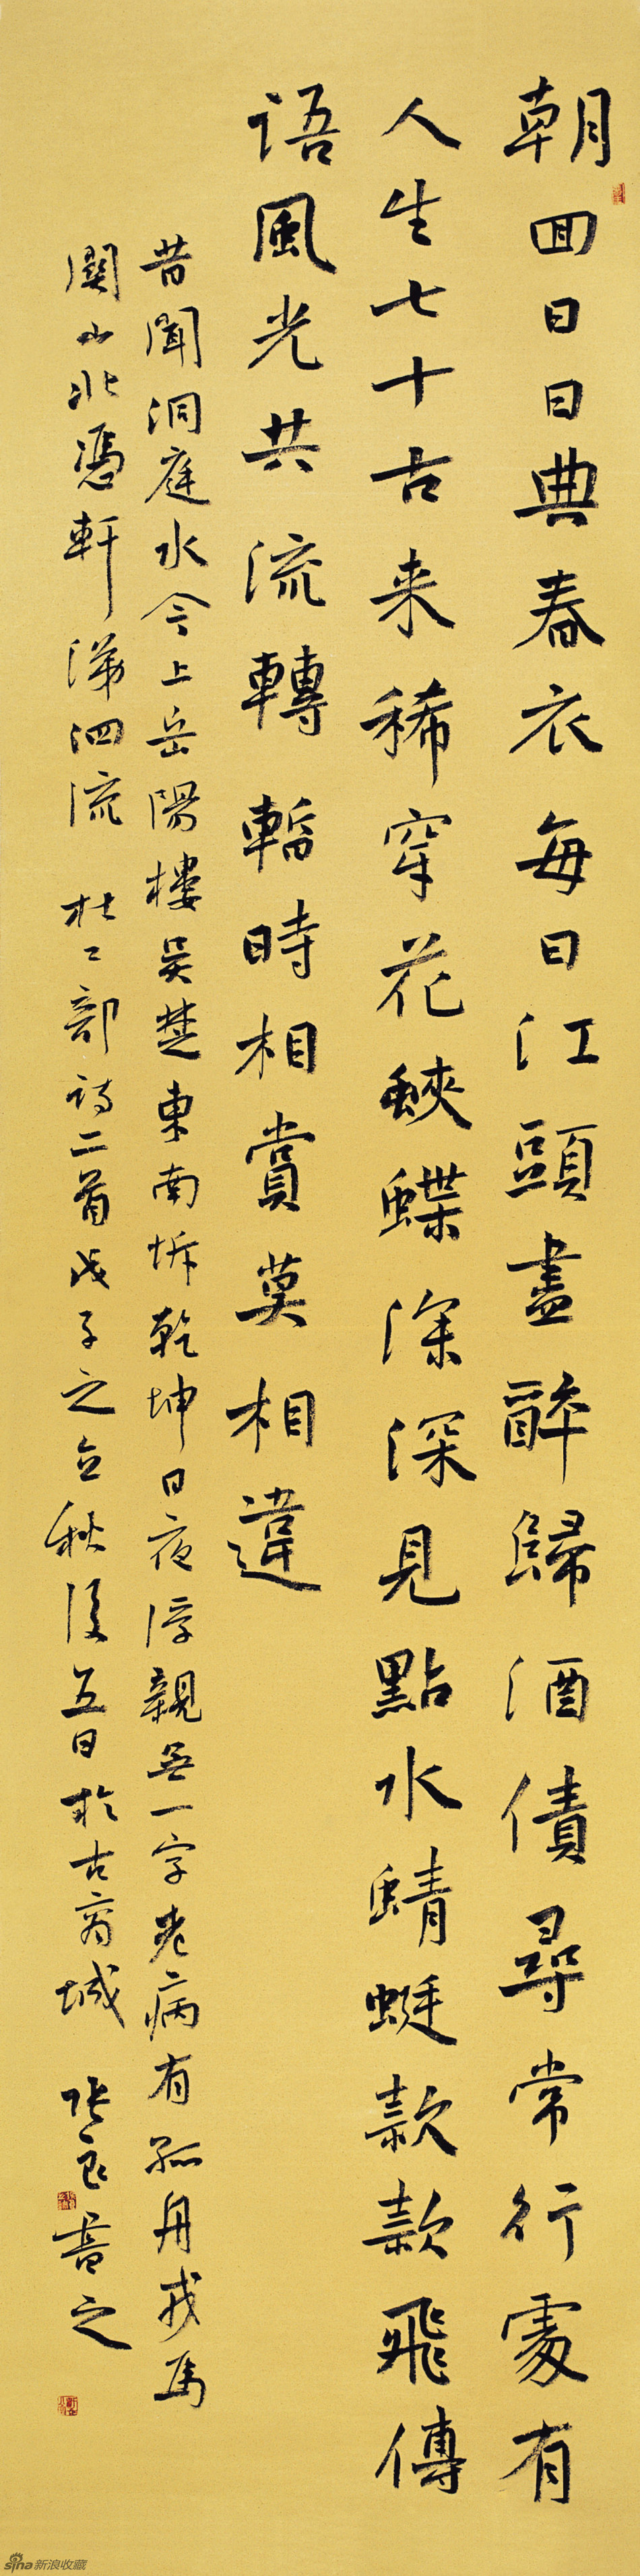 朝回日日典春衣每日江頭盡醉歸酒債尋常行處有
人生七十古来稀穿花蛺蝶深深見點水蜻蜓款款飛傳
語風光共流轉暫時相賞莫相違
昔聞洞庭水今上岳陽樓吳楚東南坼乾坤日夜浮親無一字老病有孤舟戎馬
關山北憑軒涕泗流 杜工部詩二首戊子之立秋後五日於古商城 張良書之
sina新浪收藏